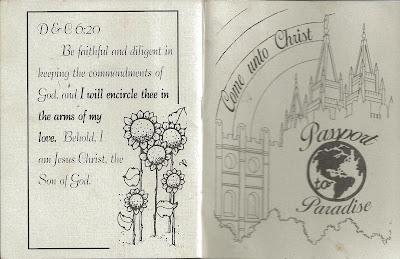 D & C 6:20
Be faithful and diligent in
keeping the commandments of
God, and I will encircle thee in
the arms of my
love. Behold, I
am Jesus Christ, the
Son of God.
Come unto Christ
Passport
to
Paradise